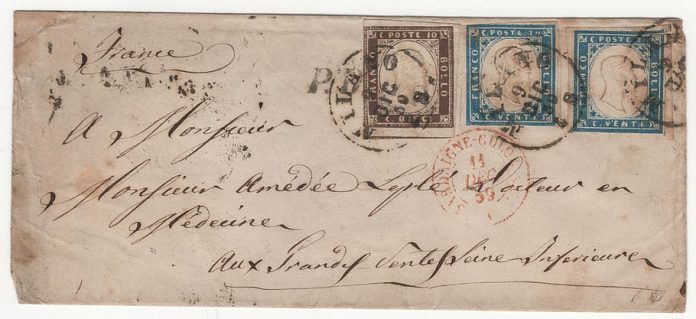 France
C. POSTE 10
FRANCO
BOLLO
C. DIECI
C. POSTE 20
FRANCO
BOLLO
C. VENTI
C. POSTE 20
FRANCO
BOLLO
C. VENTI
MILANO
9
DIC
59
MILANO
9
DIC
MILANO
P.D.
11
DEC
59
A Monsieur
Monsieur Amédée Docteur en
Médecine
Aux Grandes Ventes Seine Inferieure